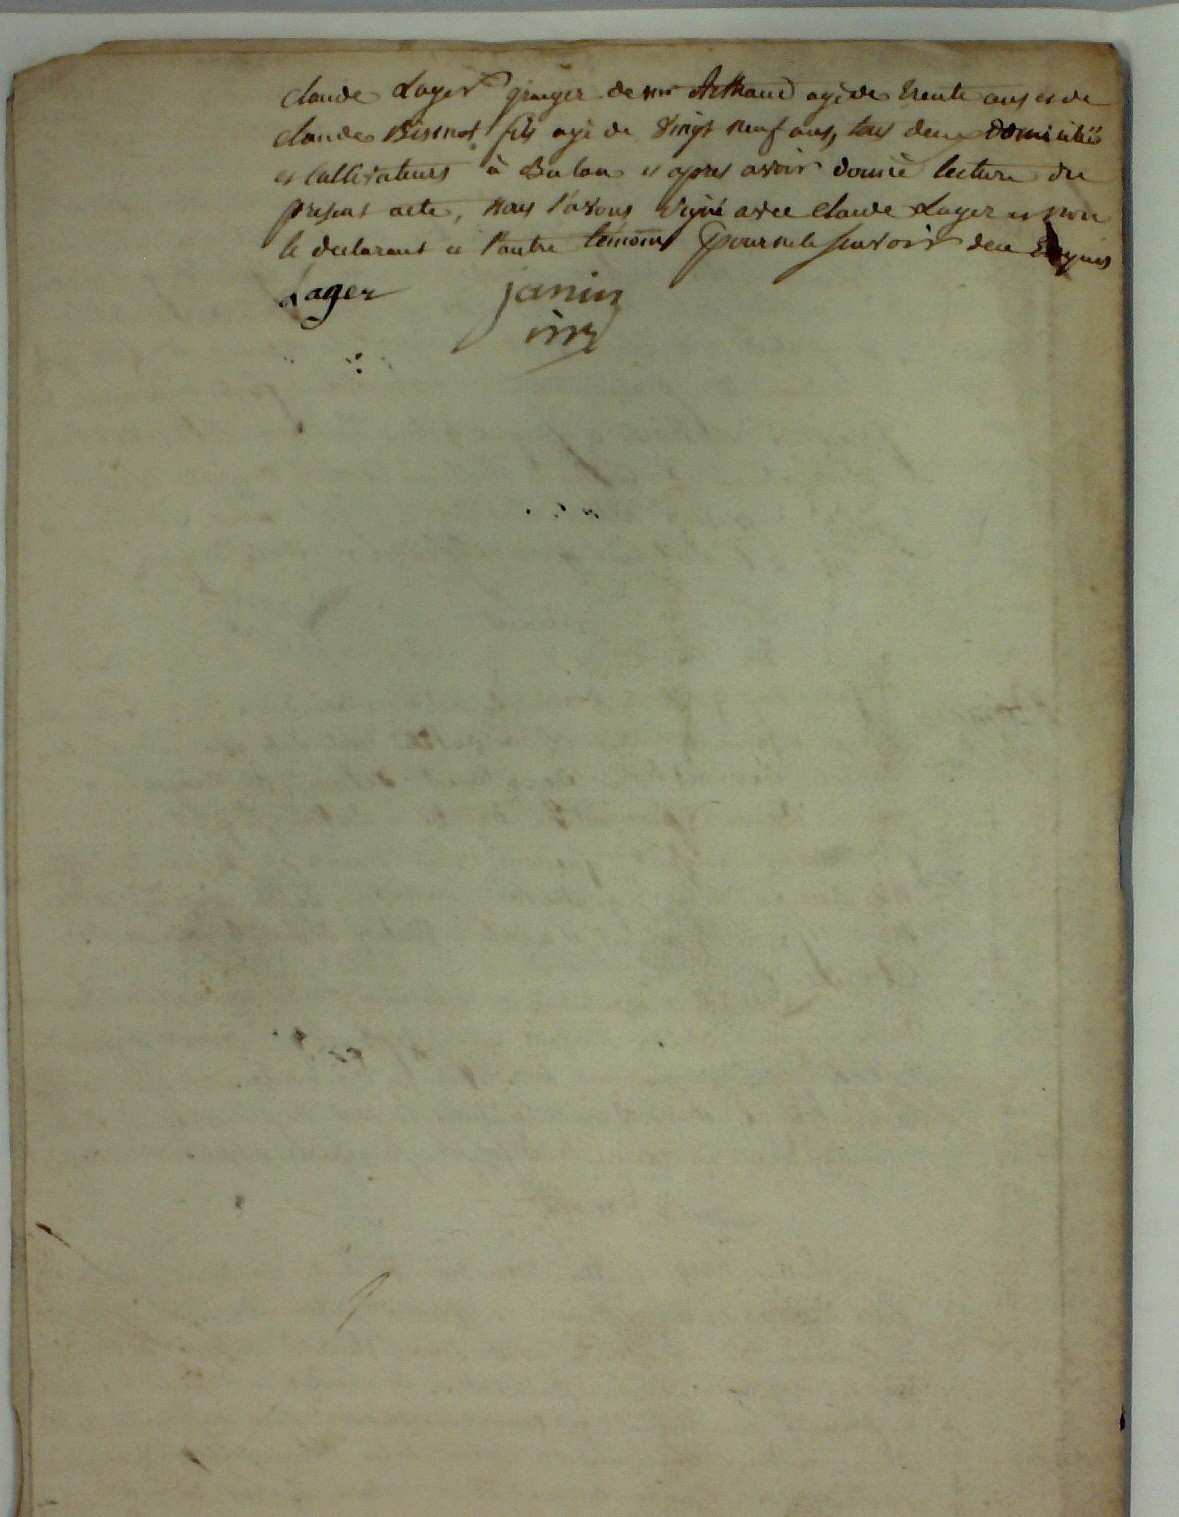 claude Layer granger de mr Arthaud agé de trente ans et de
claude Bisenot fils agé de vingt neuf ans, tous deux domiciliés
et Cultivateurs à Balan et apres avoir donné lecture du
present acte, nous l'avons signé avec claude Layer et non
le declarant ni l'autre temoins pour ne le scavoir de ce Enquis
Layer janin